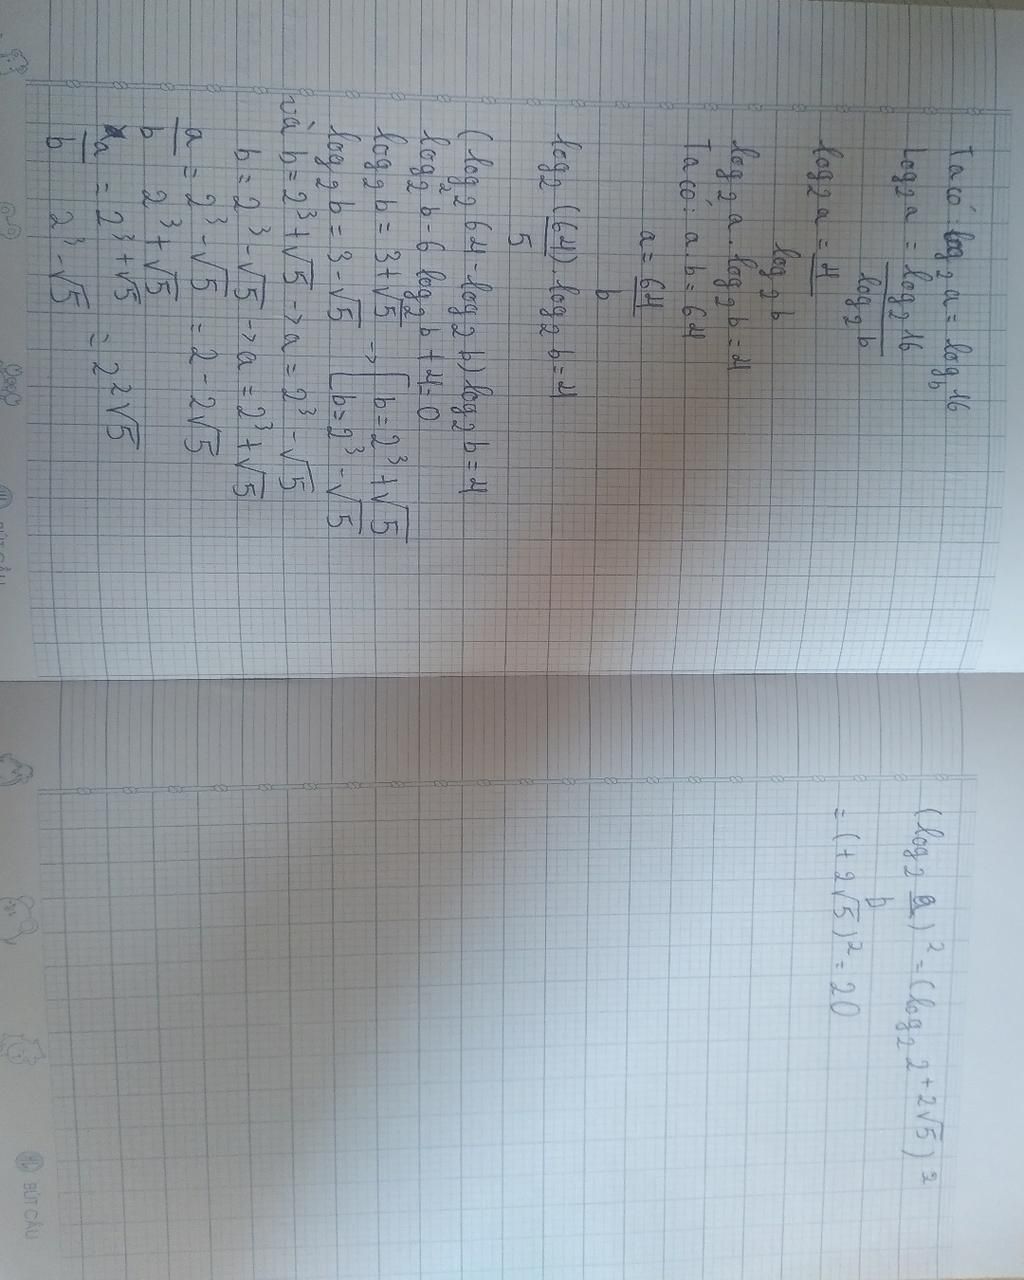 Ta có: log₂a = log_b 16
log₂a = log₂16 / log₂b
log₂a = 4 / log₂b
log₂a . log₂b = 4
Ta có: a.b = 64
a = 64/b
log₂(64/5) . log₂b = 4
(log₂64 - log₂b) log₂b = 4
log₂²b - 6 log₂b + 4 = 0
log₂b = 3 + √5 → [ b = 2^3 + √5
log₂b = 3 - √5 [ b = 2^3 - √5
và b = 2^3 + √5 -> a = 2^3 - √5
b = 2^3 - √5 -> a = 2^3 + √5
a/b = 2^3 - √5 / 2^3 + √5 = 2 - 2√5
a/b = 2^3 + √5 / 2^3 - √5 = 2^2√5
(log₂ a/b)² = (log₂ 2 + 2√5)²
= (+2√5)² = 20
BÚT CÂU